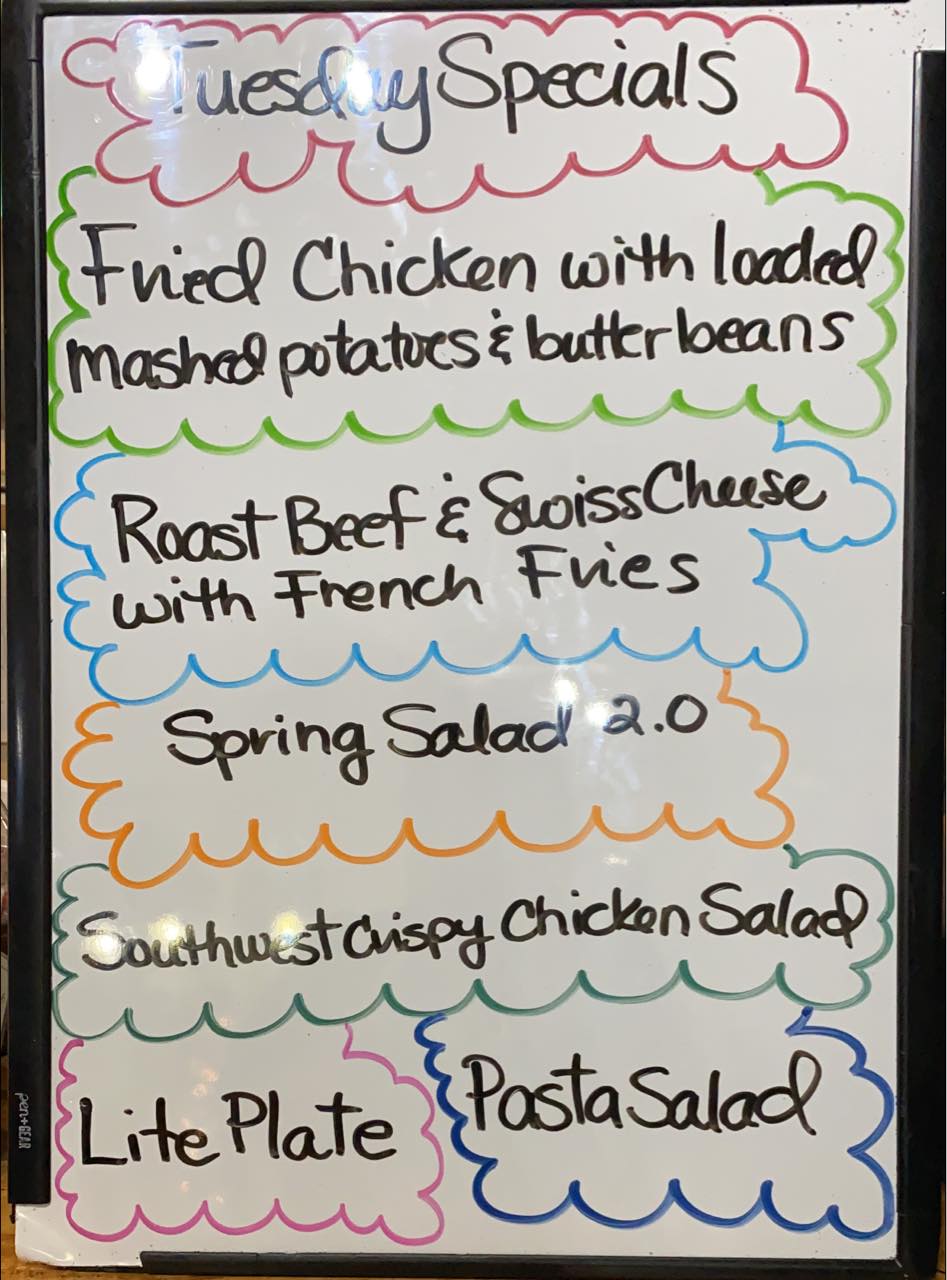 Tuesday Specials
Fried Chicken with loaded
mashed potatoes & butter beans
Roast Beef & Swiss Cheese
with French Fries
Spring Salad 2.0
Southwest Crispy Chicken Salad
Lite Plate
Pasta Salad
pen+GEAR